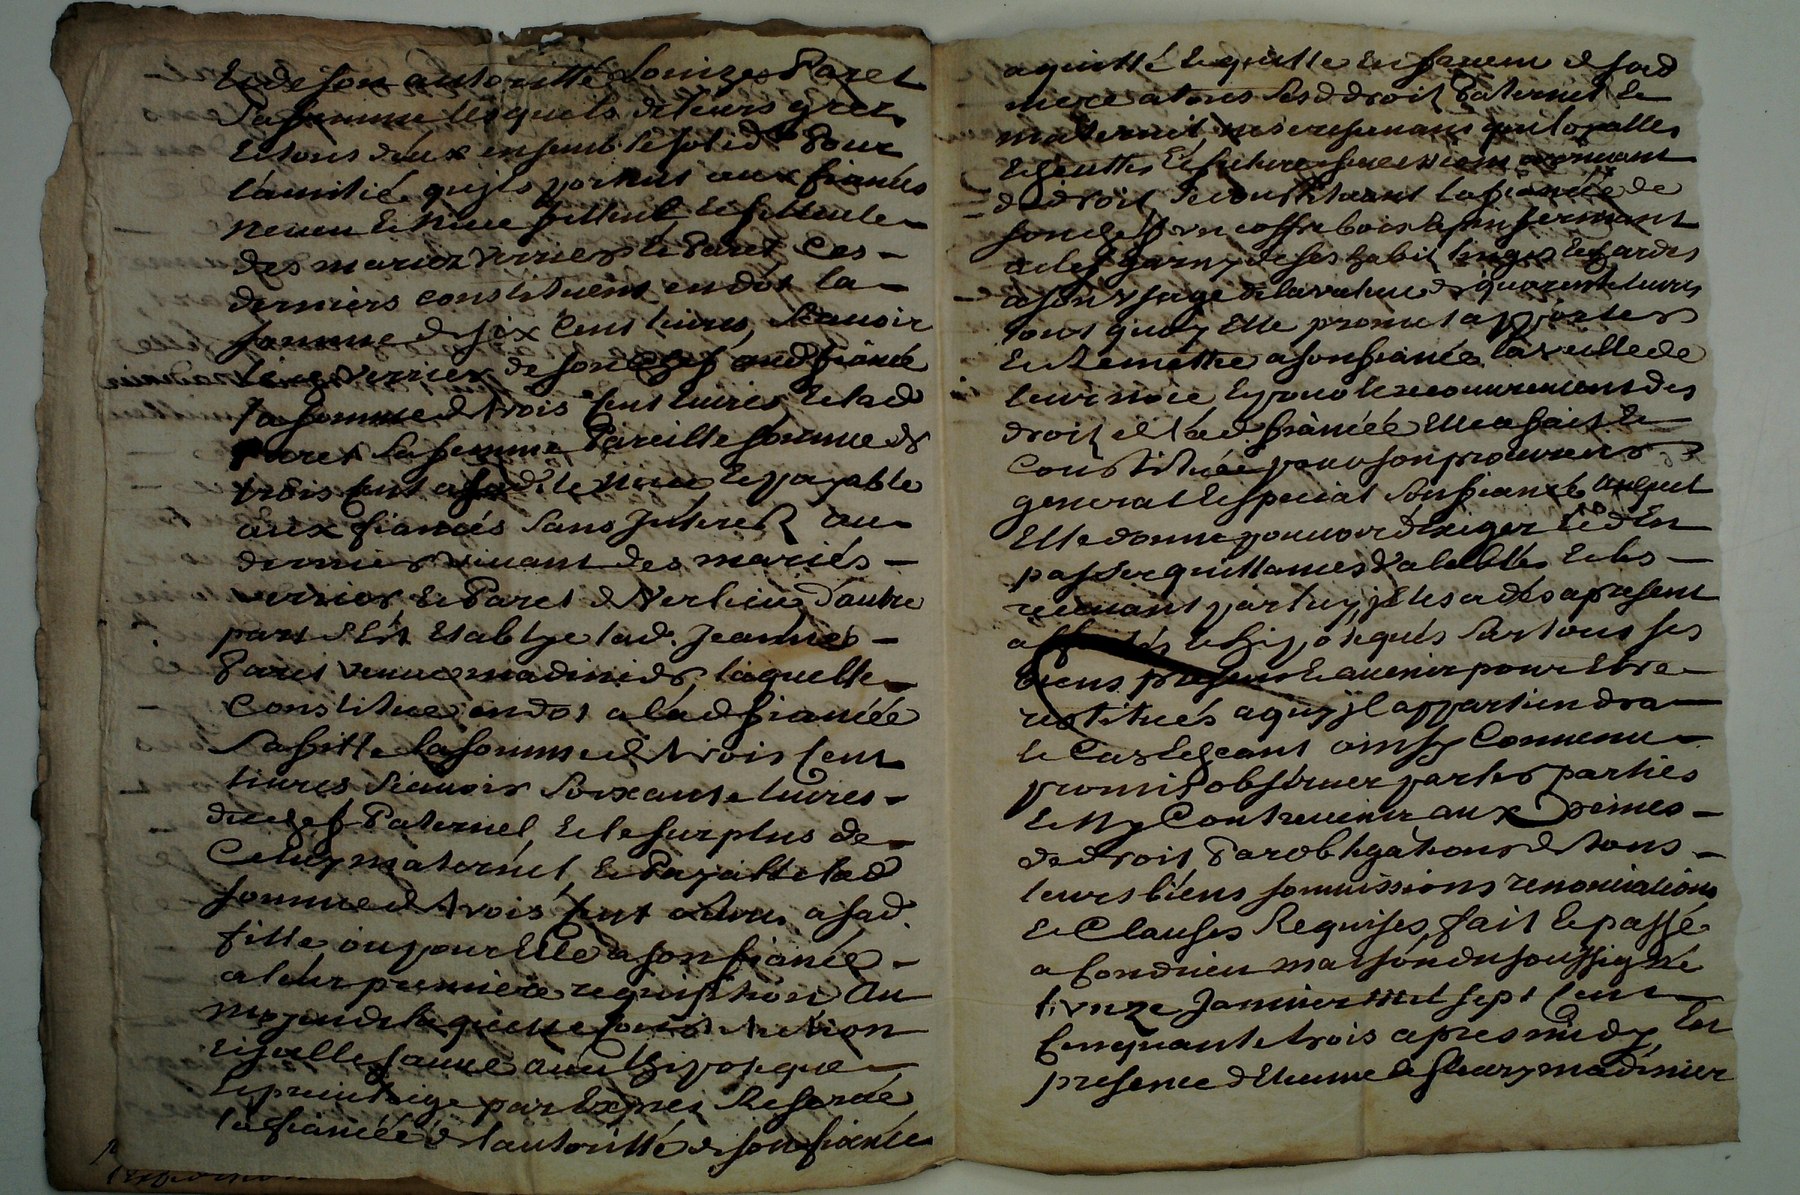 Et de son autoritté Louize Paret
Sa femme lesquels de leurs grez
Et tous deux ensemb. le solid. Pour
l'amitié quils portent aux fiancés
neveu Et niece filleul Et filleule
des mariez Verrier Et Paret Ces
derniers constituent en dot la
somme de six Cent livres, Scavoir
le Verrier de son Chef aud fiancé
la somme de trois Cent livres Et lad
Paret Sa femme Pareille somme de
trois Cent a sad. niece Et payable
aux fiancés Sans Interest au
dernier vivant des mariés
Verrier Et Paret de Verlieu d'autre
part s'est Establye lad. Jeanne
Paret veuve madinier, laquelle
Constitue en dot a lad fiancée
Sa fille la somme de trois Cent
livres Scavoir Soixante livres
du chef Paternel Et le surplus de
Celuy maternel Et Payable lad
somme de trois Cent a sad.
fille ou pour Elle a son fiancé
a leur première requisition Au
moyen de laquelle
Et par Exprez
la fiancée de l'autoritté de son fiancé
aquitté Et quitte En faveur de sad
mere a tous sesd droit Paternel Et
maternel,
Et future succession
de droit Se constituant la fiancée de
son chef un coffre bois sapin fermant
a clef garny de ses habit linges Et hardes
a son usage de la valeur de quarente livres
tout quoy Elle promet apporter
Et Remettre a son fiancé la veille de
leur noce Et pour le recouvrement des
droit de lad. fiancée Elle a fait Et
Constitué pour son procureur
general Et special Son fiancé auquel
Elle donne pouvoir d'Exiger En
passer quittances valables Et les
recevant par luy, il les a dès a present
affectés Et hipotequés Sur tous ses
biens present Et avenir pour Etre
restitués a qui il appartiendra
le Cas Echeant ainsy Convenu
promis observer par les parties
Et n'y Contrevenir aux peines
de droit Par obligations de tous
leurs biens soumissions renonciations
Et Clauses Requises, fait Et passé
a Condrieu maison du soussigné
le onze Janvier mil sept Cent
Cinquante trois apres midy, En
presence d'Etienne Et fleury madinier